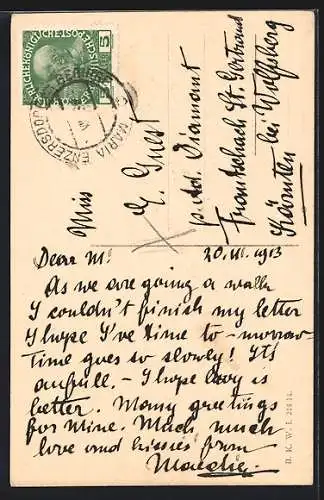 5
MARIA ENZERSDORF
Miss
E. Guest
p. Ad. Diamant
Frantschach St. Gertraud
bei Wolfsberg
Kärnten
Dear M! 20. III. 1913
As we are going a walk
I couldn't finish my letter
I hope I've time to-morrow
Time goes so slowly! It's
aufull. - I hope is
better. Many greetings
for Mine. Much much
love and kisses from
Maedie.
B. K. W. I.